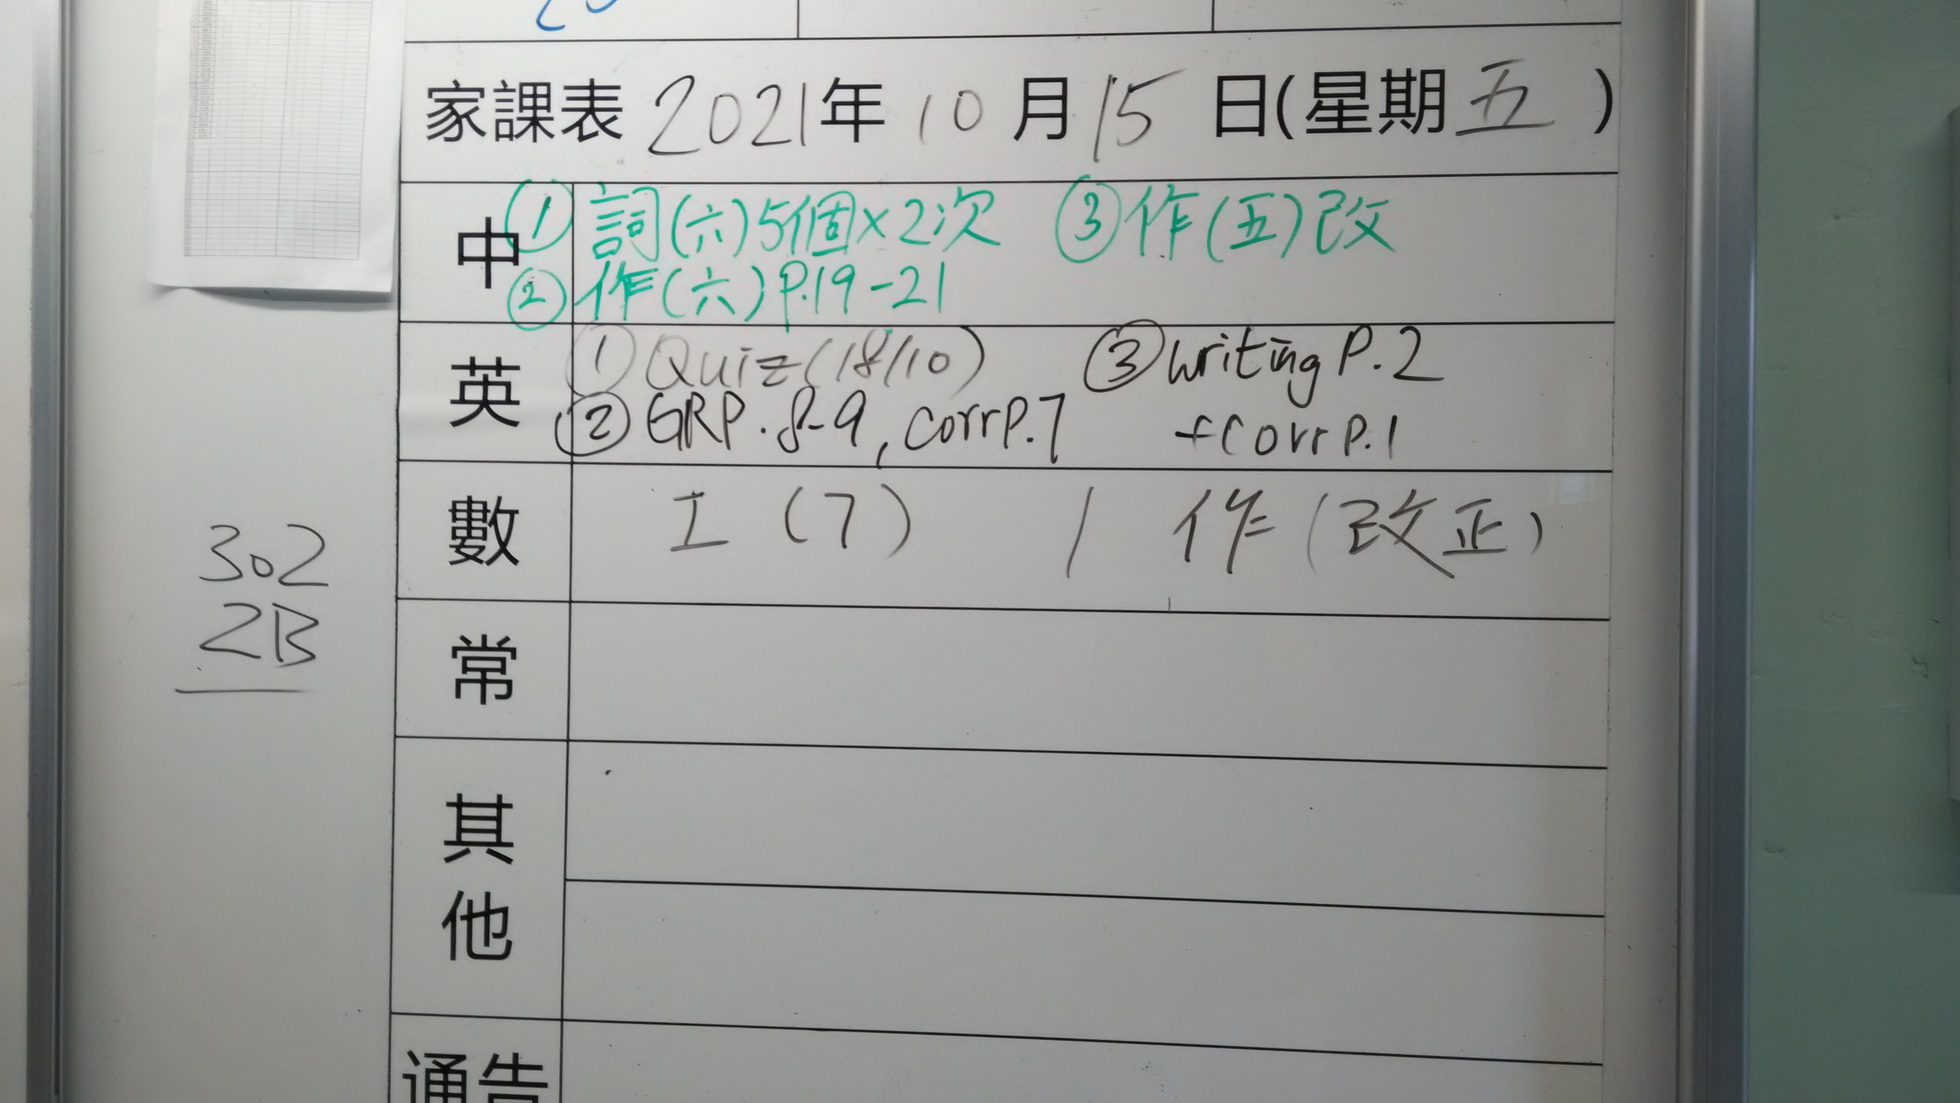 家課表 2021年 10 月 15 日(星期 五 )
中 ① 詞(六)5個×2次 ③ 作(五)改
② 作(六)P.19-21
英 ① Quiz(18/10) ③ writing P.2
② GRP.8-9, corrP.7 +corrP.1
數 工 (7) / 作(改正)
302
2B
常
其
他
通告